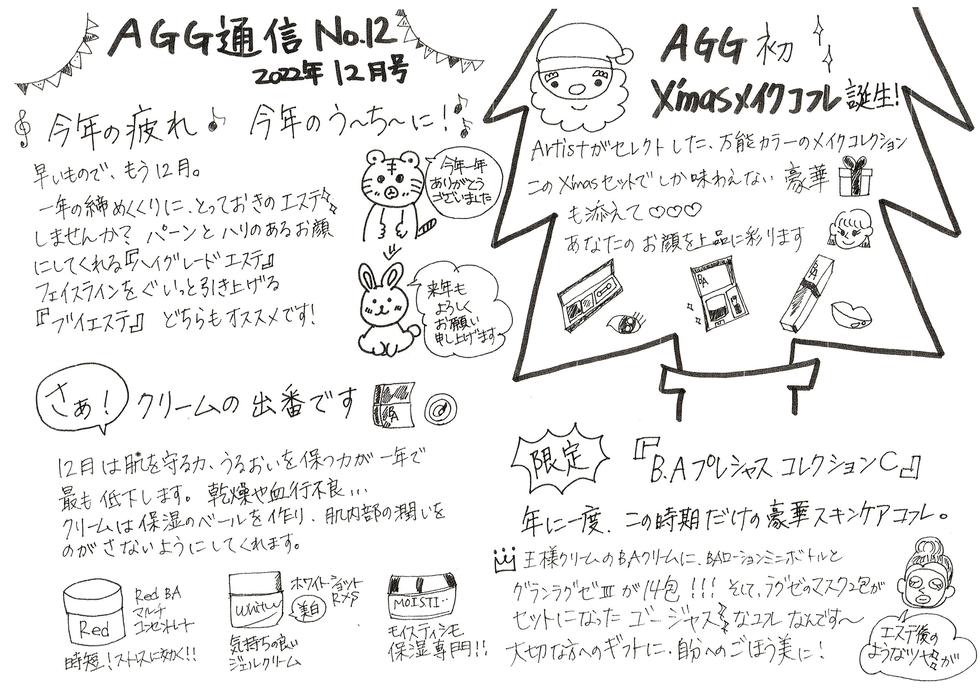 AGG通信 No.12
2022年 12月号
今年の疲れ♪ 今年のう〜ち〜に!
早いもので、もう12月。
一年の締めくくりに、とっておきのエステ
しませんか? パーンとハリのあるお顔
にしてくれる『ハイグレードエステ』
フェイスラインをぐいっと引き上げる
『ブイエステ』 どちらもオススメです!
今年一年
ありがとう
ございました
来年も
よろしく
お願い
申し上げます
AGG 初
X'masメイクコフレ 誕生!
Artistがセレクトした、万能カラーのメイクコレクション
このXmasセットでしか味わえない 豪華
も添えて♡♡♡
あなたのお顔を上品に彩ります
BA
BA
さぁ! クリームの出番です
BA
12月は肌を守る力、うるおいを保つ力が一年で
最も低下します。乾燥や血行不良…
クリームは保湿のベールを作り、肌内部の潤いを
のがさないようにしてくれます。
Red
Red BA
マルチ
コンセントレート
時短!ストレスに効く!!
White
ホワイトショット
RXS
美白
気持ちの良い
ジェルクリーム
MOISTI‥
モイスティシモ
保湿専門!!
限定 『B.Aプレシャス コレクションC』
年に一度、この時期だけの豪華スキンケアコフレ。
王様クリームのBAクリームに、BAローションミニボトルと
グランラグゼⅢが14包!!! そして、ラグゼのマスク2包が
セットになった ゴージャスなコフレなんです〜
大切な方へのギフトに、自分へのごほう美に!
エステ後の
ようなツヤが